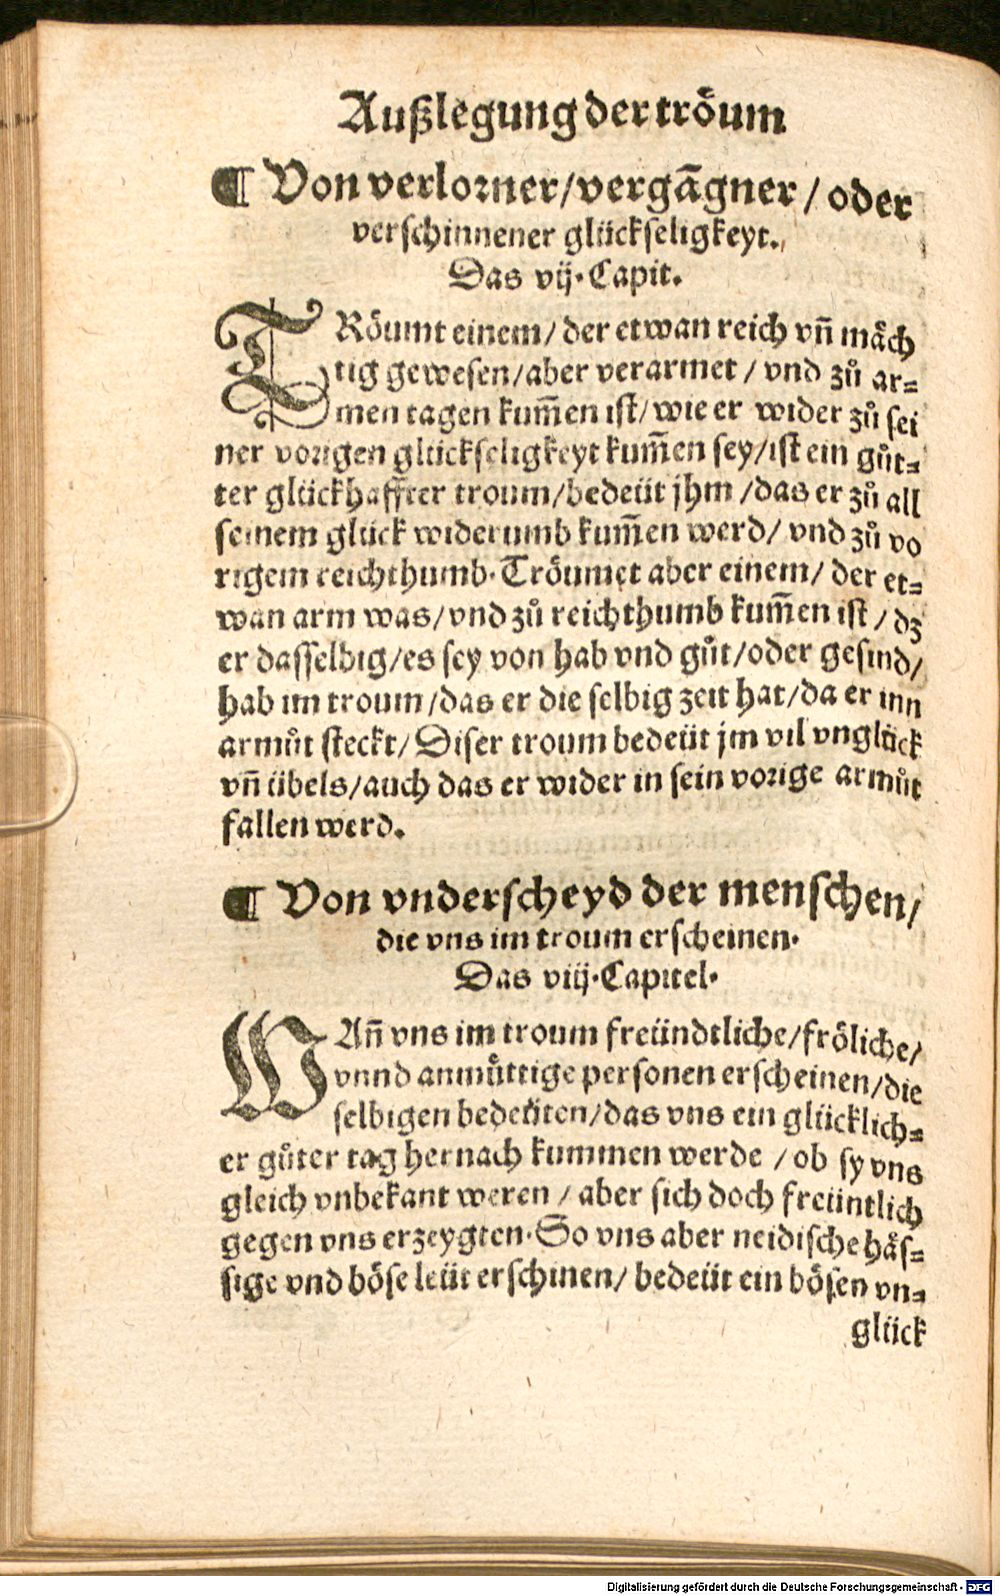 Außlegung der tröum
¶ Von verlorner/vergāgner/oder
verschinnener glückseligkeyt.
Das vij. Capit.
TRöumt einem/ der etwan reich vn̄ mäch
tig gewesen/aber verarmet / vnd zů ar⸗
men tagen kum̄en ist/ wie er wider zů sei
ner vorigen glückseligkeyt kum̄en sey/ist ein gůt⸗
ter glückhaffter troum/bedeüt jhm /das er zů all
seinem glück widerumb kum̄en werd/ vnd zů vo
rigem reichthumb. Tröumet aber einem/ der et⸗
wan arm was/vnd zů reichthumb kum̄en ist / dz
er dasselbig/es sey von hab vnd gůt/oder gesind/
hab im troum/das er die selbig zeit hat/da er inn
armůt steckt/ Diser troum bedeüt jm vil vnglück
vn̄ übels/auch das er wider in sein vorige armůt
fallen werd.
¶ Von vnderscheyd der menschen/
die vns im troum erscheinen.
Das viij. Capitel.
WAn̄ vns im troum freündtliche/fröliche/
vnnd anmůttige personen erscheinen/die
selbigen bedeüten/das vns ein glücklich⸗
er gůter tag hernach kummen werde / ob sy vns
gleich vnbekant weren / aber sich doch freüntlich
gegen vns erzeygten. So vns aber neidische häs⸗
sige vnd böse leüt erschinen/ bedeüt ein bösen vn⸗
glück
Digitalisierung gefördert durch die Deutsche Forschungsgemeinschaft - DFG